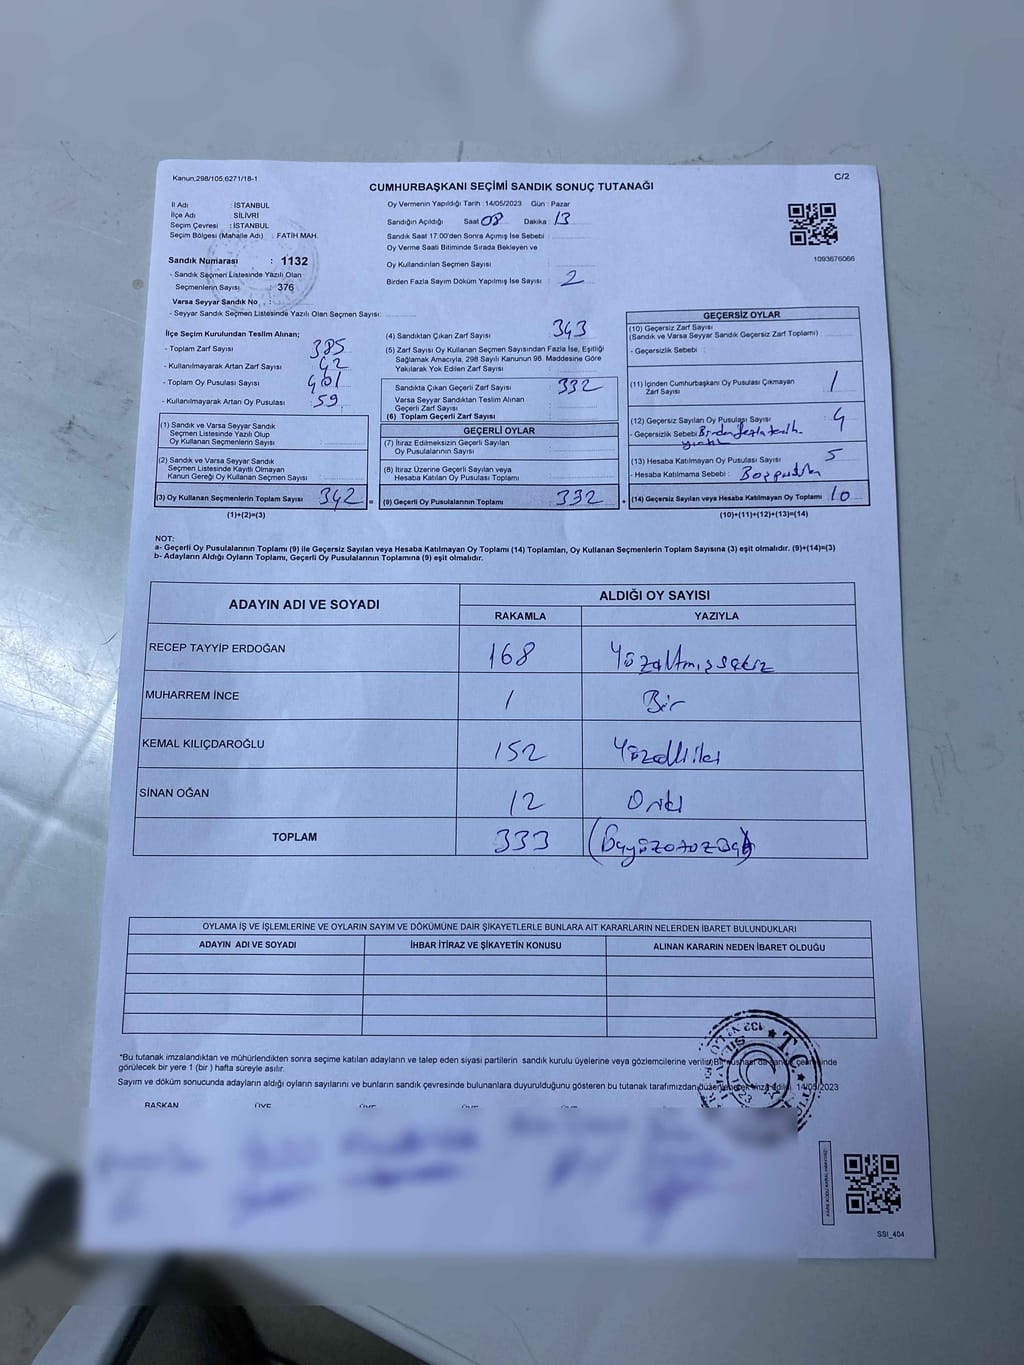 Kanun,298/105;6271/18-1
C/2
CUMHURBAŞKANI SEÇİMİ SANDIK SONUÇ TUTANAĞI
İl Adı : İSTANBUL
İlçe Adı : SİLİVRİ
Seçim Çevresi : İSTANBUL
Seçim Bölgesi (Mahalle Adı) : FATİH MAH.
Sandık Numarası : 1132
- Sandık Seçmen Listesinde Yazılı Olan
Seçmenlerin Sayısı : 376
Varsa Seyyar Sandık No :
- Seyyar Sandık Seçmen Listesinde Yazılı Olan Seçmen Sayısı:
Oy Vermenin Yapıldığı Tarih :14/05/2023 Gün : Pazar
Sandığın Açıldığı Saat 08 Dakika : 13
Sandık Saat 17:00'den Sonra Açımış İse Sebebi
Oy Verme Saati Bitiminde Sırada Bekleyen ve
Oy Kullandırılan Seçmen Sayısı
Birden Fazla Sayım Döküm Yapılmış İse Sayısı : 2
1093676066
İlçe Seçim Kurulundan Teslim Alınan;
- Toplam Zarf Sayısı 385
- Kullanılmayarak Artan Zarf Sayısı : 42
- Toplam Oy Pusulası Sayısı : 401
- Kullanılmayarak Artan Oy Pusulası : 59
(1) Sandık ve Varsa Seyyar Sandık
Seçmen Listesinde Yazılı Olup
Oy Kullanan Seçmenlerin Sayısı
(2) Sandık ve Varsa Seyyar Sandık
Seçmen Listesinde Kayıtlı Olmayan
Kanun Gereği Oy Kullanan Seçmen Sayısı
(3) Oy Kullanan Seçmenlerin Toplam Sayısı 342 =
(1)+(2)=(3)
(4) Sandıktan Çıkan Zarf Sayısı 343
(5) Zarf Sayısı Oy Kullanan Seçmen Sayısından Fazla İse, Eşitliği
Sağlamak Amacıyla, 298 Sayılı Kanunun 98. Maddesine Göre
Yakılarak Yok Edilen Zarf Sayısı
Sandıkta Çıkan Geçerli Zarf Sayısı 332
Varsa Seyyar Sandıktan Teslim Alınan
Geçerli Zarf Sayısı
(6) Toplam Geçerli Zarf Sayısı
GEÇERLİ OYLAR
(7) İtiraz Edilmeksizin Geçerli Sayılan
Oy Pusulasının Sayısı
(8) İtiraz Üzerine Geçerli Sayılan veya
Hesaba Katılan Oy Pusulası Toplamı
(9) Geçerli Oy Pusulalarının Toplamı 332 +
GEÇERSİZ OYLAR
(10) Geçersiz Zarf Sayısı
(Sandık ve Varsa Seyyar Sandık Geçersiz Zarf Toplamı)
- Geçersizlik Sebebi :
(11) İçinden Cumhurbaşkanı Oy Pusulası Çıkmayan
Zarf Sayısı 1
(12) Geçersiz Sayılan Oy Pusulası Sayısı 4
- Geçersizlik Sebebi Birden fazla
(13) Hesaba Katılmayan Oy Pusulası Sayısı 5
- Hesaba Katılmama Sebebi :
(14) Geçersiz Sayılan veya Hesaba Katılmayan Oy Toplamı 10
(10)+(11)+(12)+(13)=(14)
NOT:
a- Geçerli Oy Pusulalarının Toplamı (9) ile Geçersiz Sayılan veya Hesaba Katılmayan Oy Toplamı (14) Toplamları, Oy Kullanan Seçmenlerin Toplam Sayısına (3) eşit olmalıdır. (9)+(14)=(3)
b- Adayların Aldığı Oyların Toplamı, Geçerli Oy Pusulalarının Toplamına (9) eşit olmalıdır.
ADAYIN ADI VE SOYADI
ALDIĞI OY SAYISI
RAKAMLA YAZIYLA
RECEP TAYYİP ERDOĞAN 168 Yüzaltmışsekiz
MUHARREM İNCE 1 Bir
KEMAL KILIÇDAROĞLU 152 Yüzelliiki
SİNAN OĞAN 12 Oniki
TOPLAM 333
OYLAMA İŞ VE İŞLEMLERİNE VE OYLARIN SAYIM VE DÖKÜMÜNE DAİR ŞİKAYETLERLE BUNLARA AİT KARARLARIN NELERDEN İBARET BULUNDUKLARI
ADAYIN ADI VE SOYADI İHBAR İTİRAZ VE ŞİKAYETİN KONUSU ALINAN KARARIN NEDEN İBARET OLDUĞU
*Bu tutanak imzalandıktan ve mühürlendikten sonra seçime katılan adayların ve talep eden siyasi partilerin sandık kurulu üyelerine veya gözlemcilerine verilir.
görülecek bir yere 1 (bir ) hafta süreyle asılır.
Sayım ve döküm sonucunda adayların aldığı oyların sayılarını ve bunların sandık çevresinde bulunanlara duyurulduğunu gösteren bu tutanak tarafımızdan 14/05/2023
BAŞKAN ÜYE ÜYE ÜYE ÜYE
T.C.
SSI_404